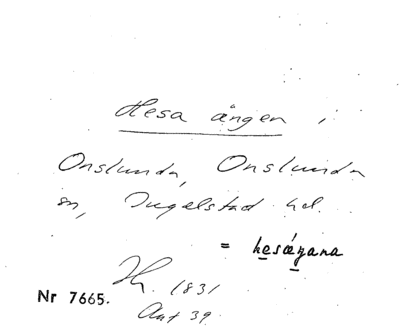 Hesa ången,
Onslunda, Onslunda
sn, Ingelstad hd.
= hesáŋana
1831
Nr 7665.
Ant 39.